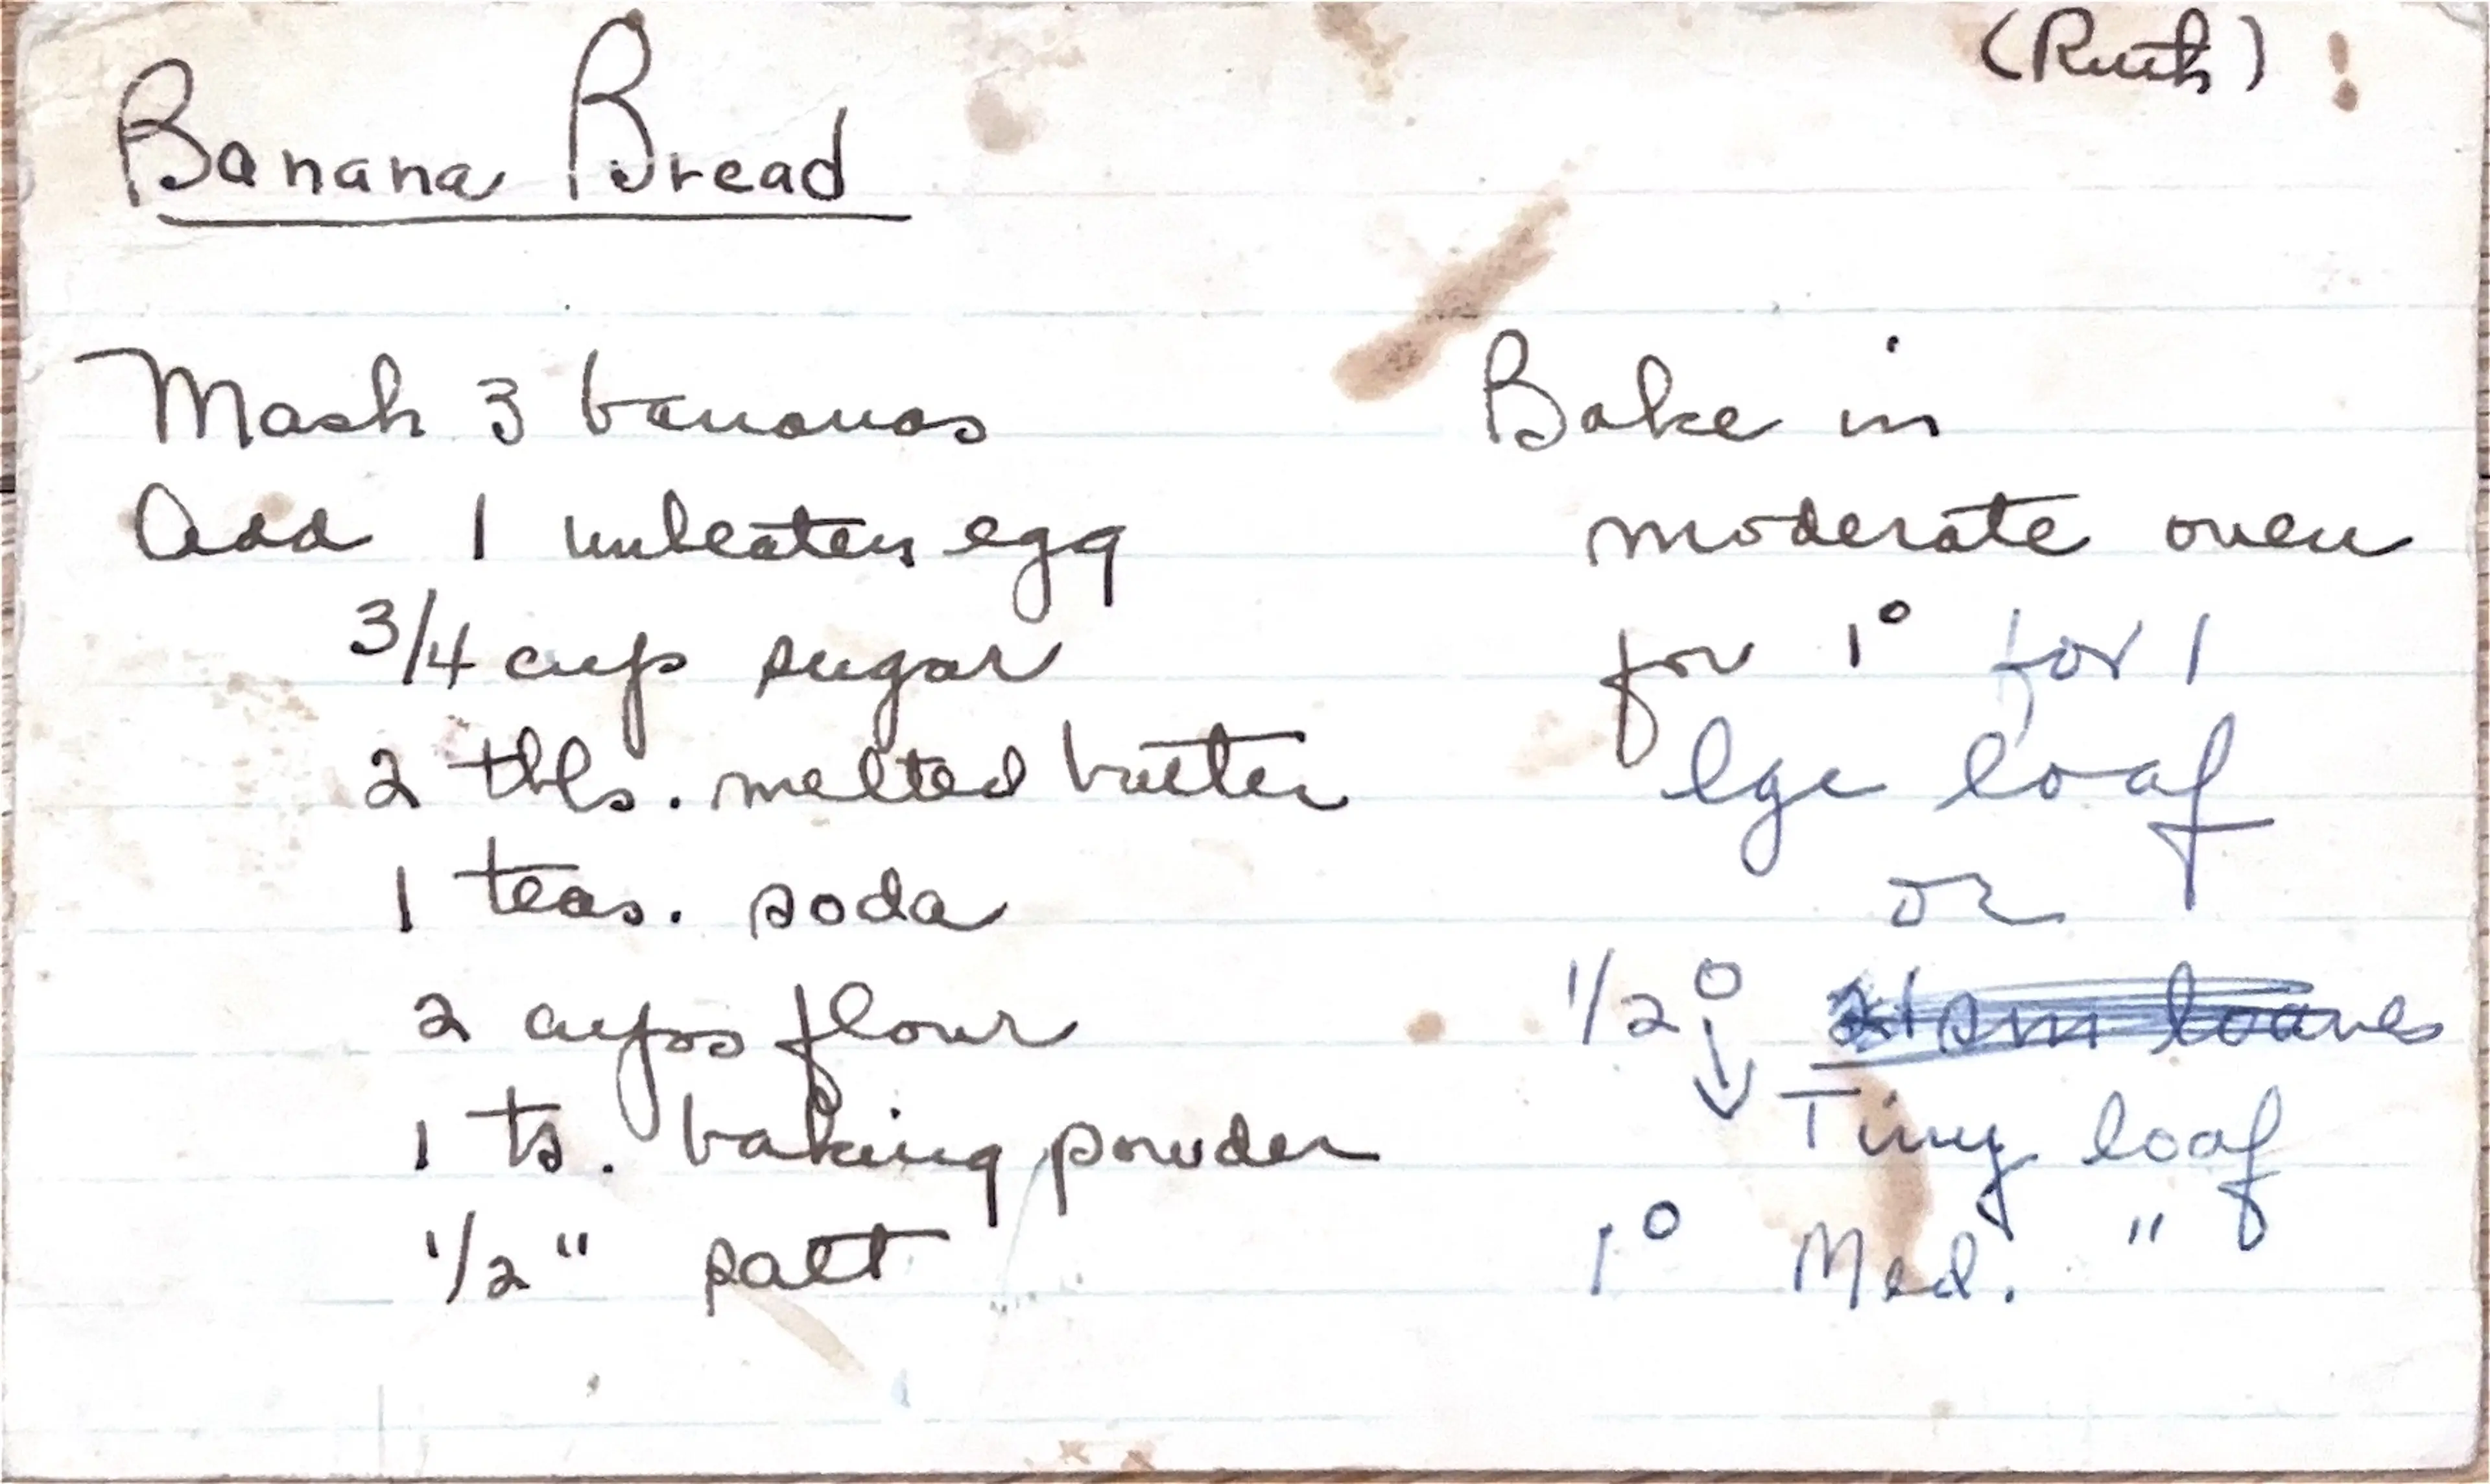 (Ruth)
Banana Bread
Mash 3 bananas
Add 1 unbeaten egg
3/4 cup sugar
2 tbls. melted butter
1 teas. soda
2 cups flour
1 ts. baking powder
1/2 " salt
Bake in
moderate oven
for 1° for 1
lge loaf
or
1/2° sm loaves
↓ Tiny loaf
1° Med. "